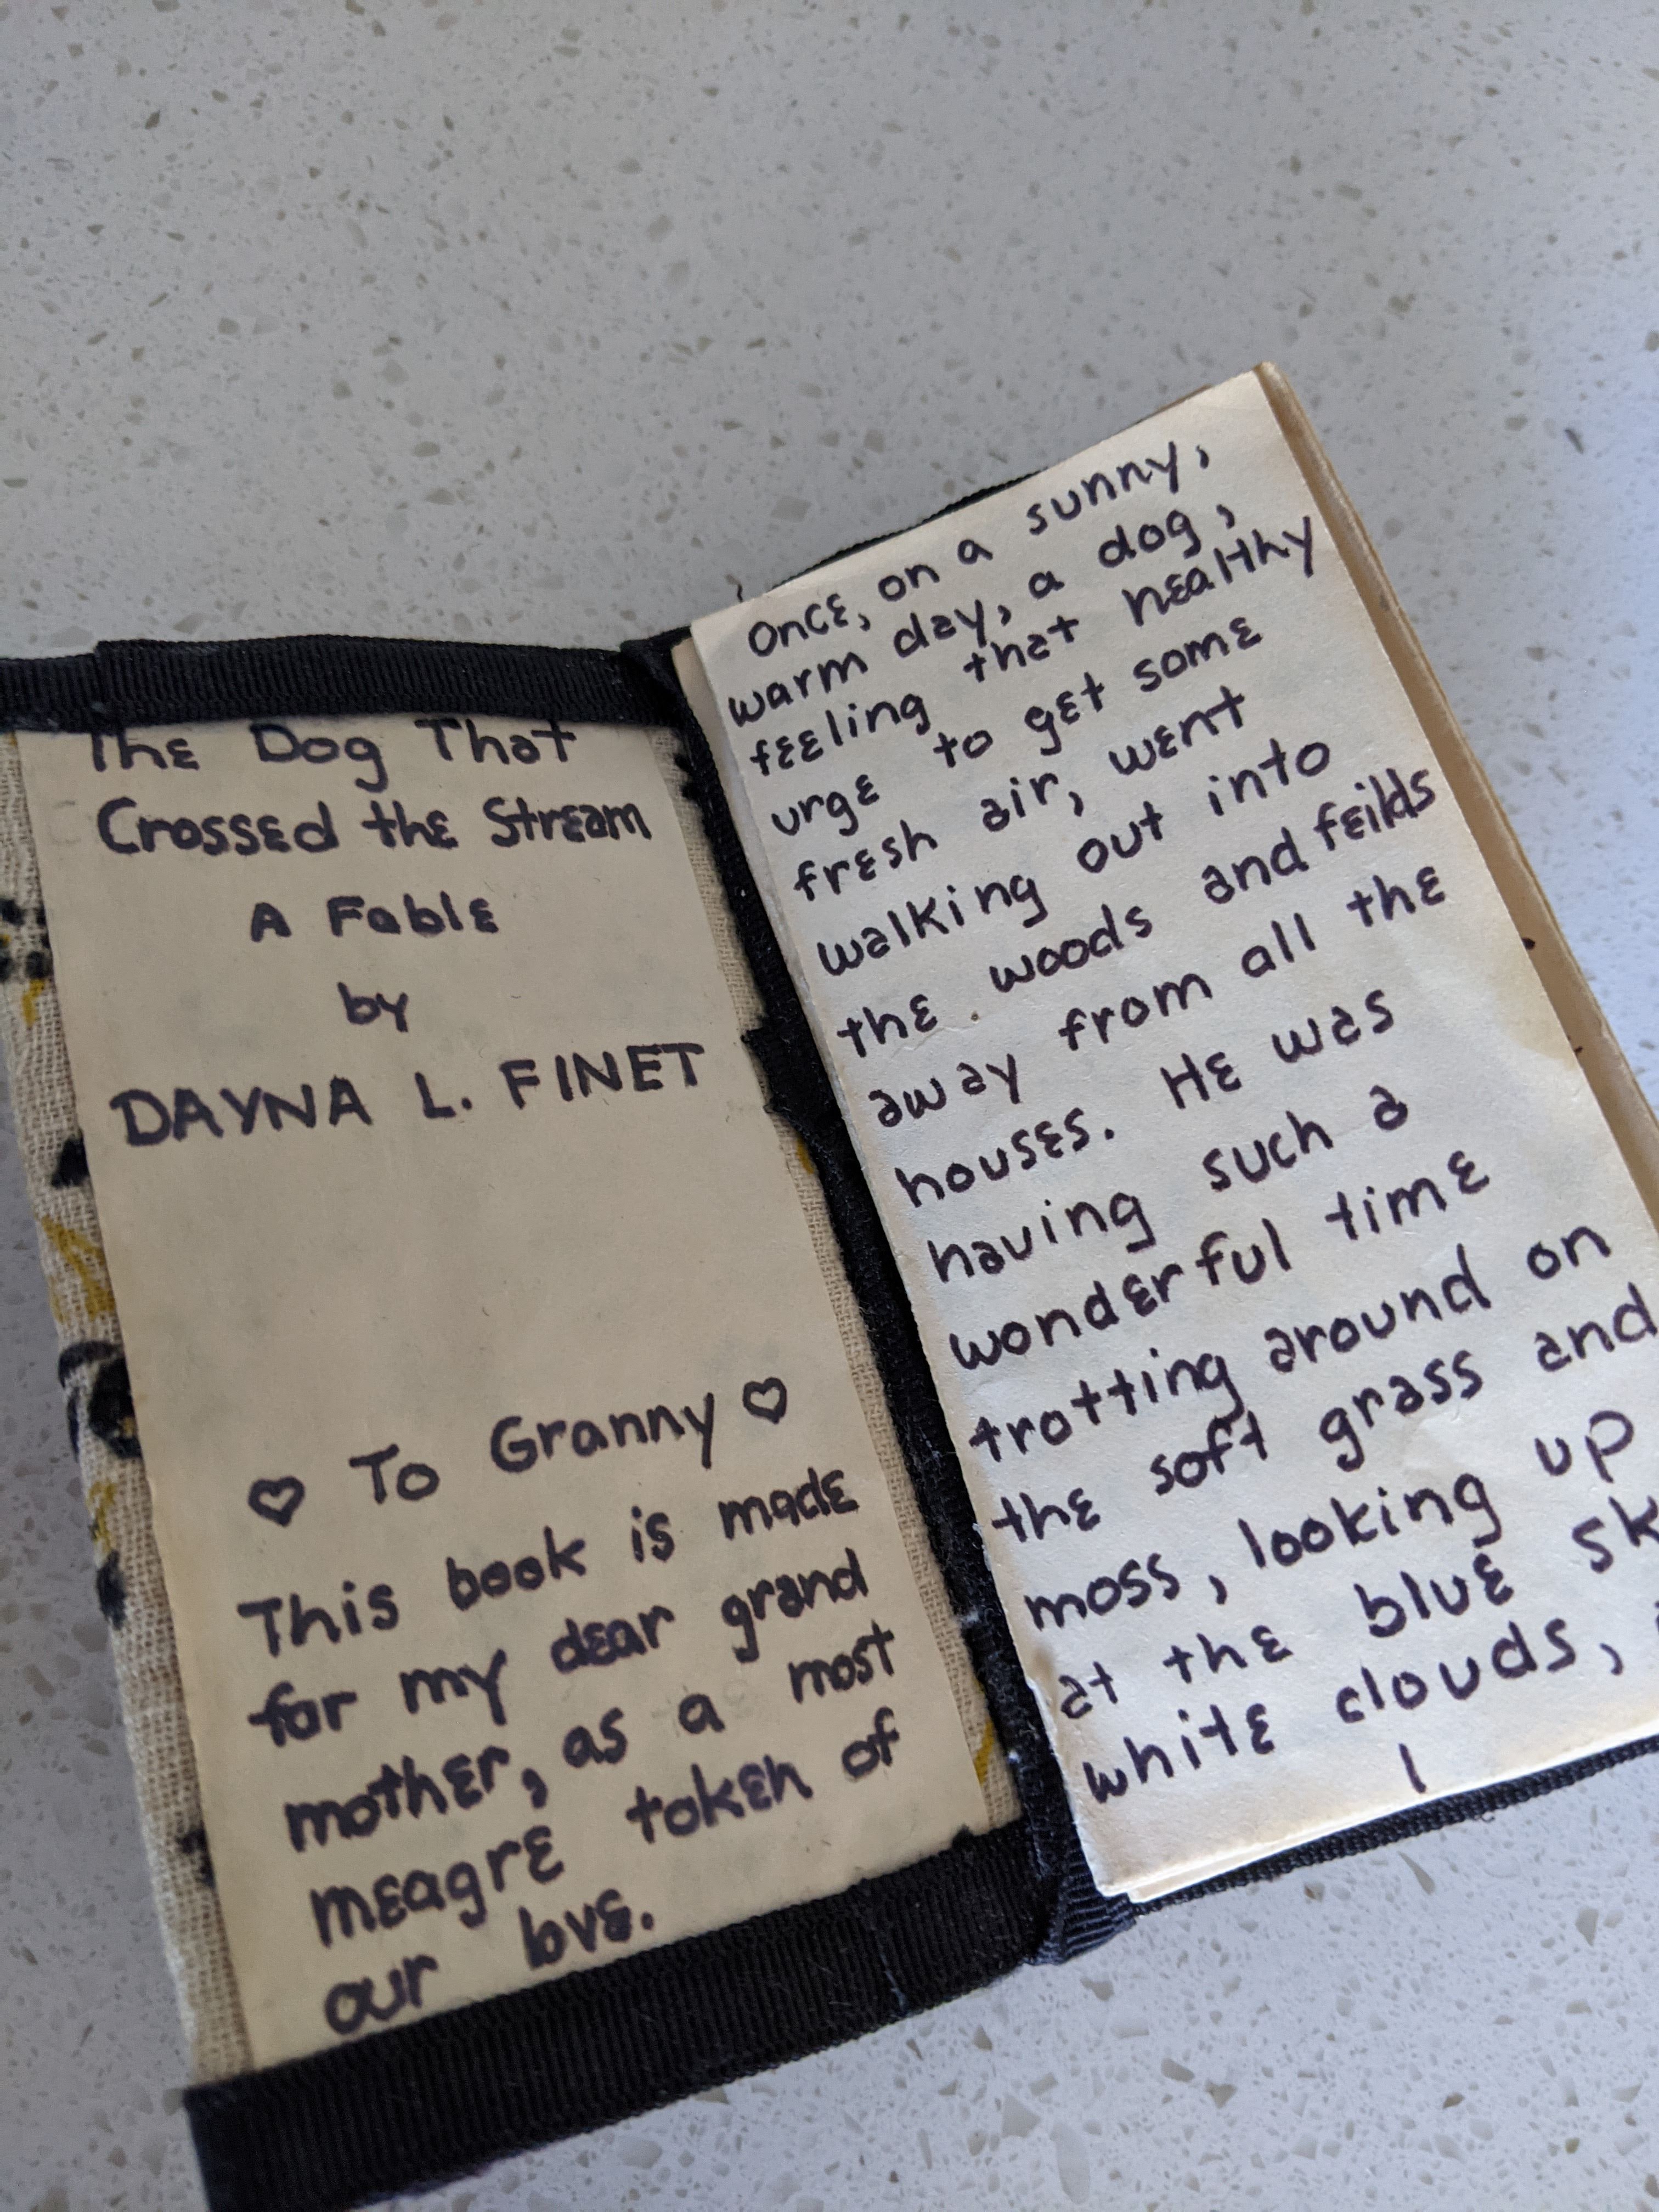 The Dog That
Crossed the Stream
A Fable
by
DAYNA L. FINET
♡ To Granny ♡
This book is made
for my dear grand
mother, as a most
meagre token of
our love.
Once, on a sunny,
warm day, a dog,
feeling that healthy
urge to get some
fresh air, went
walking out into
the woods and feilds
away from all the
houses. He was
having such a
wonderful time
trotting around on
the soft grass and
moss, looking up
at the blue sk
white clouds,
1